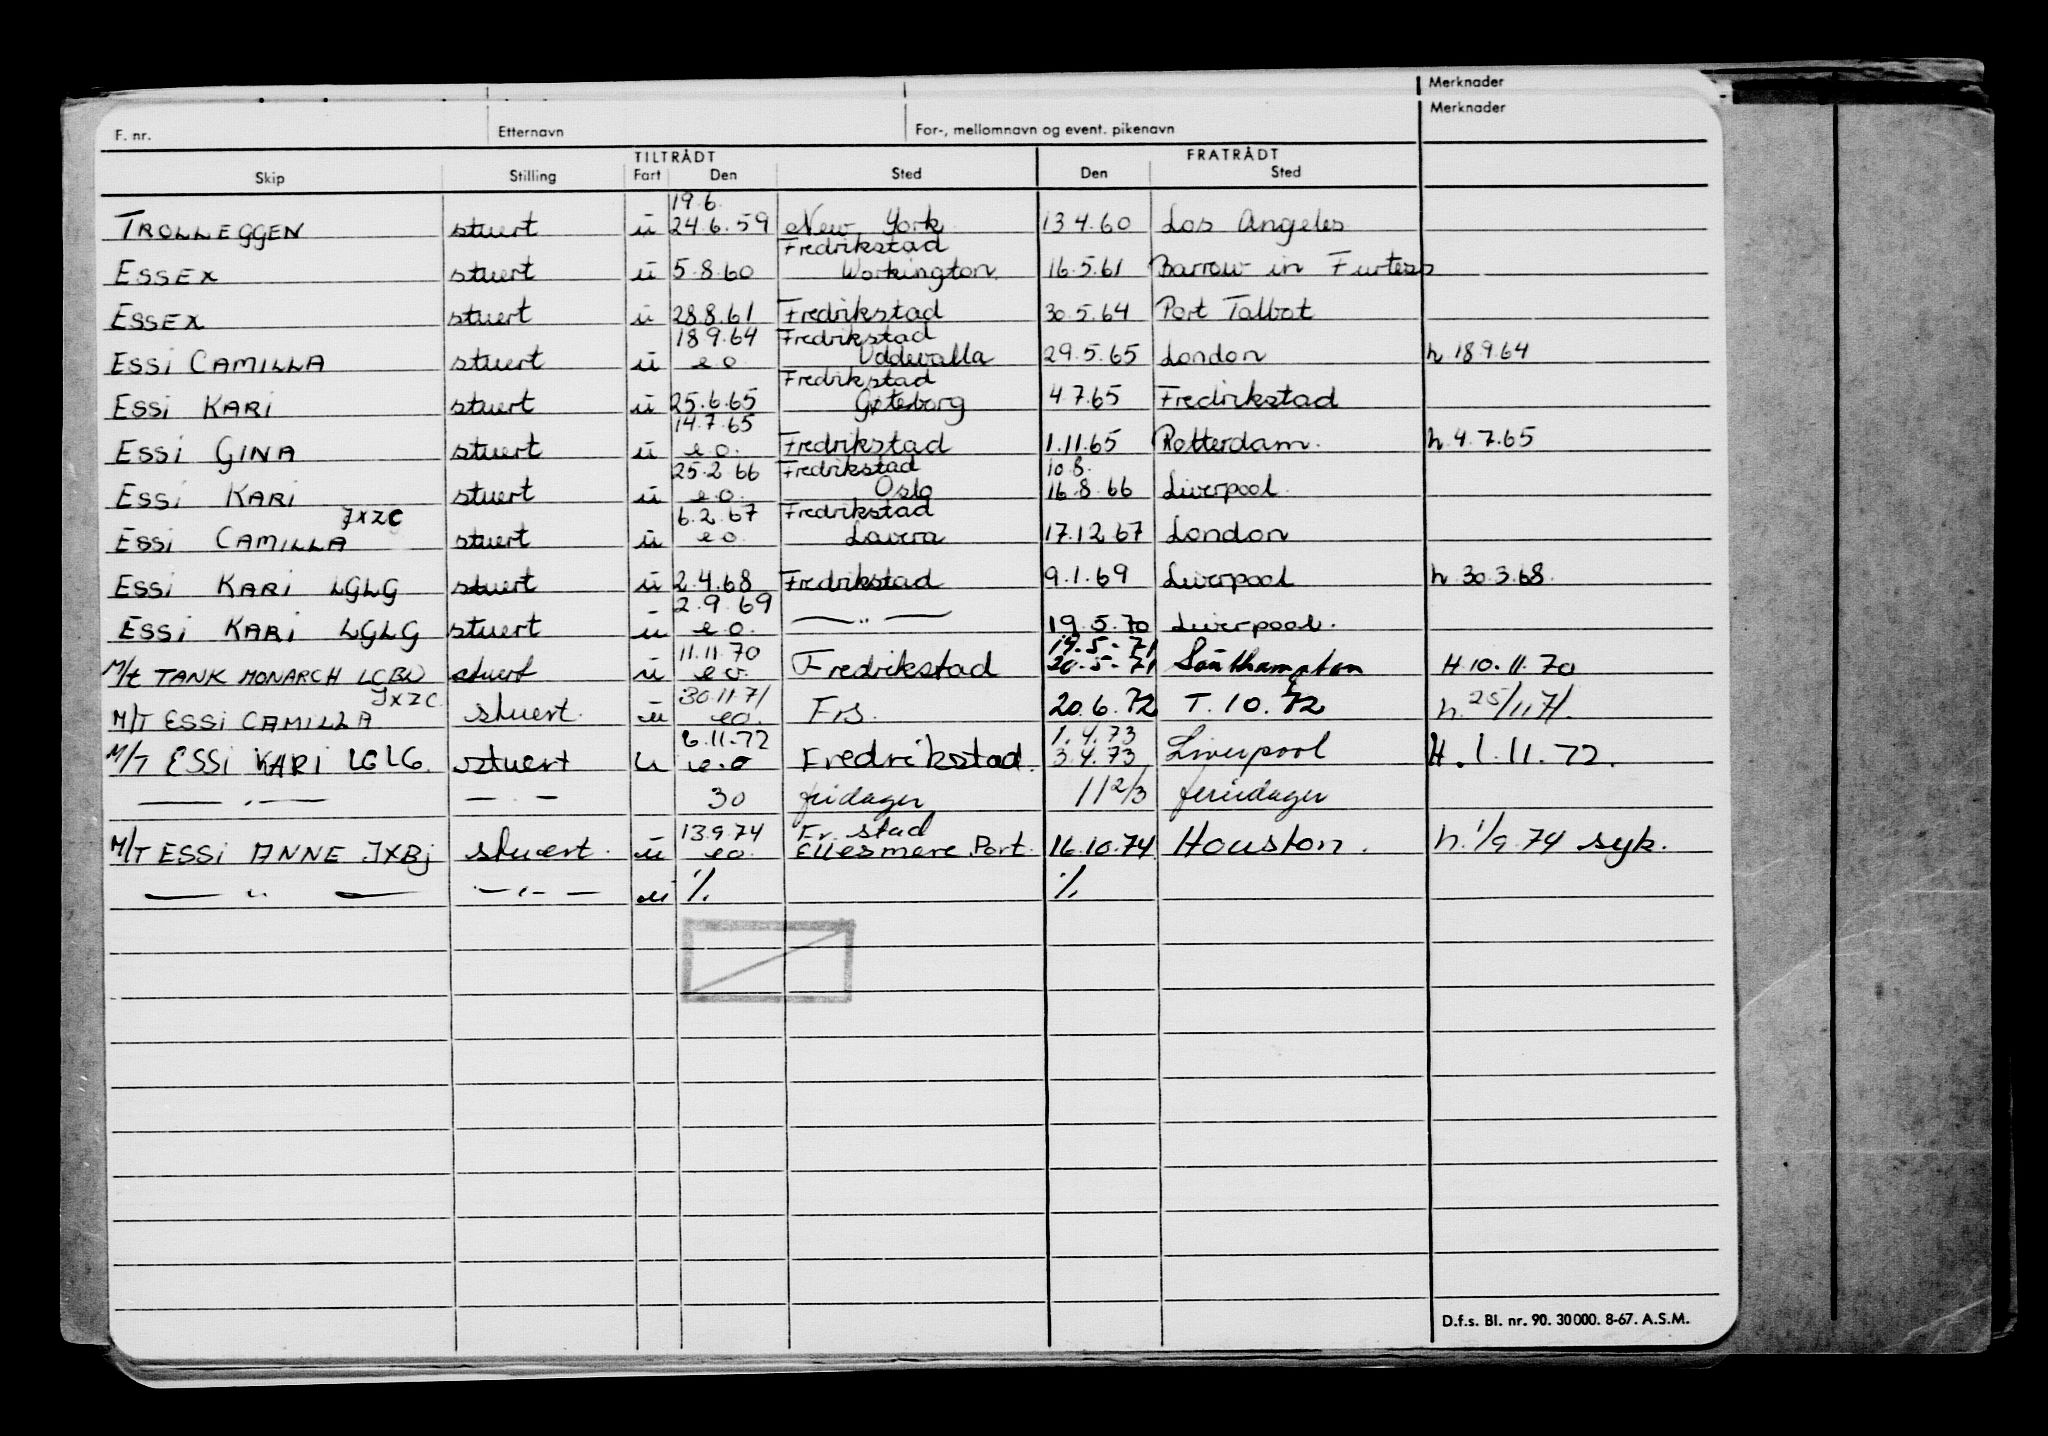 Merknader
Merknader
F. nr. Etternavn For-, mellomnavn og event. pikenavn
TILTRÅDT FRATRÅDT
Skip Stilling Fart Den Sted Den Sted
19.6.
TROLLEGGEN stuert ü 24.6.59 New York 13.4.60 Los Angeles
Fredrikstad
ESSEX stuert ü 5.8.60 Workington 16.5.61 Barrow in Furtess
ESSEX stuert ü 28.8.61 Fredrikstad 30.5.64 Port Talbot
18.9.64 Fredrikstad
ESSI CAMILLA stuert ü e.o. Uddevalla 29.5.65 London h 18.9.64
Fredrikstad
ESSI KARI stuert ü 25.6.65 Gøteborg 4.7.65 Fredrikstad
14.7.65
ESSI GINA stuert ü e.o. Fredrikstad 1.11.65 Rotterdam. h.4.7.65
25.2.66 Fredrikstad 10.8.
ESSI KARI stuert ü e.o. Oslo 16.8.66 Liverpool.
JXZC 6.2.67 Fredrikstad
ESSI CAMILLA stuert ü e.o. Lavera 17.12.67 London
ESSI KARI LGLG stuert ü 2.4.68 Fredrikstad 9.1.69 Liverpool h.30.3.68.
2.9.69
ESSI KARI LGLG stuert ü e.o. — " — 19.5.70 Liverpool.
11.11.70 19.5.-71
M/t TANK MONARCH LCBW stuert ü e.o. Fredrikstad 20.-5-71 Southampton H.10.11.70
JXZC 30.11.71
M/T ESSI CAMILLA stuert. ü e.o. Frs. 20.6.72 T.10.72 h.25/11 71.
6.11.72 1.4.73
M/T ESSI KARI LGLG. stuert u e.o Fredrikstad. 3.4.73 Liverpool H.1.11.72.
— " — — " — 30 fridager 11 2/3 feriedager
13.9.74 Fr.stad
M/T ESSI ANNE JXBJ stuert. ü e.o. Ellesmere Port. 16.10.74 Houston. h.1/9.74 syk.
— " — — " — ü % %
D.f.s. Bl. nr. 90. 30 000. 8-67. A.S.M.